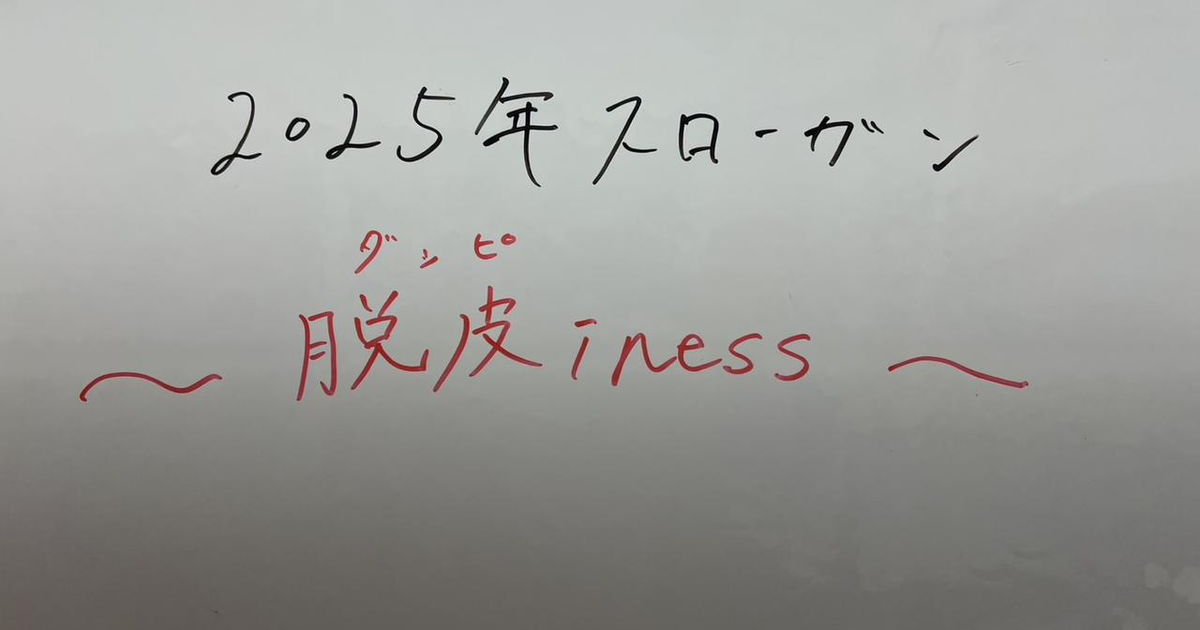 2025年スローガン
ダンピ
～ 脱皮iness ～